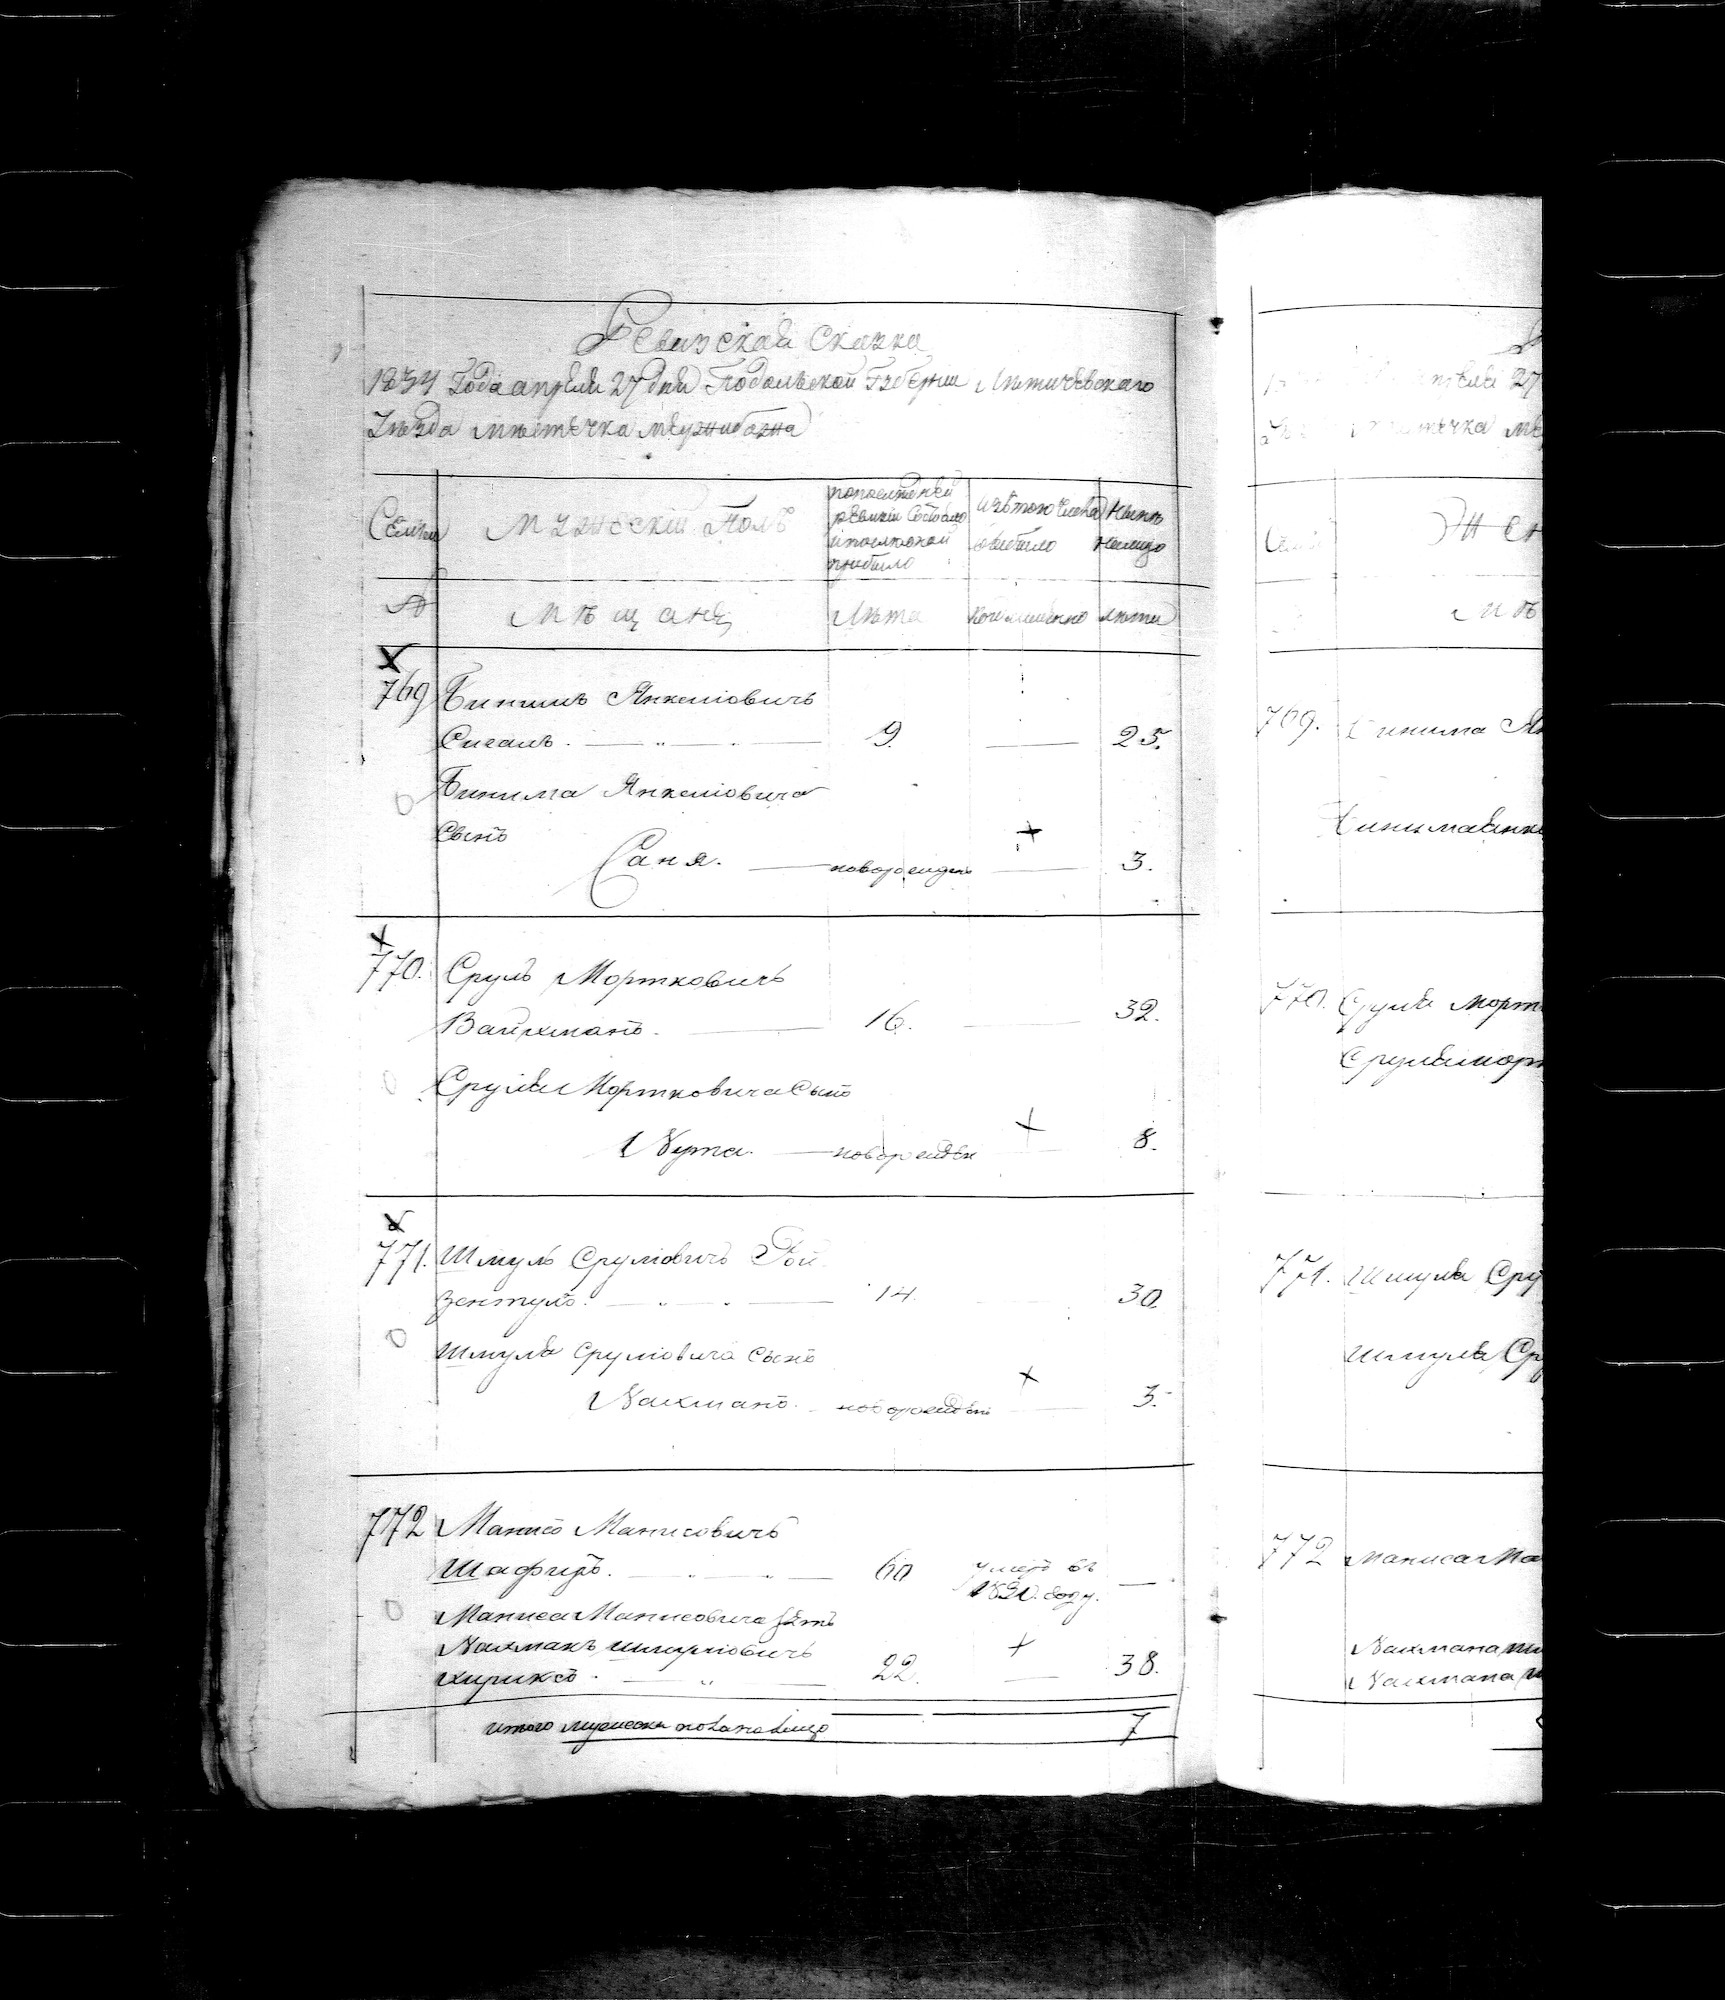 Ревизская Сказка
1834 Года апреля 27 дня Подольской Губернии Летичевского
Уезда местечка Меужибожа
Семьи
Мужеский Полъ
по последней ревизии состояло и после оной прибыло
Изъ того числа выбыло
Ныне на лицо
№
мещане
Лета
Когда именно
лета
769
Бинимъ Янкелiовичъ
Сигалъ. 9. 25.
Бинима Янкелiовича
Сынъ
Саня. новорожден 3.
770. Сруль Мортковичъ
Вайхманъ. 16. 32.
Сруля Мортковича Сынъ
Нута. новорожден 8.
771. Шмуль Срулiовичъ Рой
зентулъ. 14. 30.
Шмуля Срулiовича Сынъ
Нахманъ. новорожден 3.
772 Манисъ Манисовичъ
Шафиръ. 60 умеръ въ
1830. году.
Маниса Манисовича зять
Нахманъ Шмулiовичъ
22. 38.
итого мужеска пола на лицо 7
769. Бинима Ян
Бинима Янке
770. Сруля Морт
Сруля Морт
771. Шмуля Сру
Шмуля Сру
772 Маниса Ма
Нахмана Шм
Нахмана